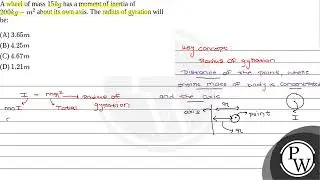 A wheel of mass 15kg has a moment of inertia of
200kg – m² about its own axis. The radius of gyration will
be:
(A) 3.65m
(B) 4.25m
(C) 4.67m
(D) 1.21m
key concept
Radius of gyration
Distance of the point, where
entire mass of body is concentrated
and the axis
I = mk² → radius of
gyration
Total
axis
point
I
PW